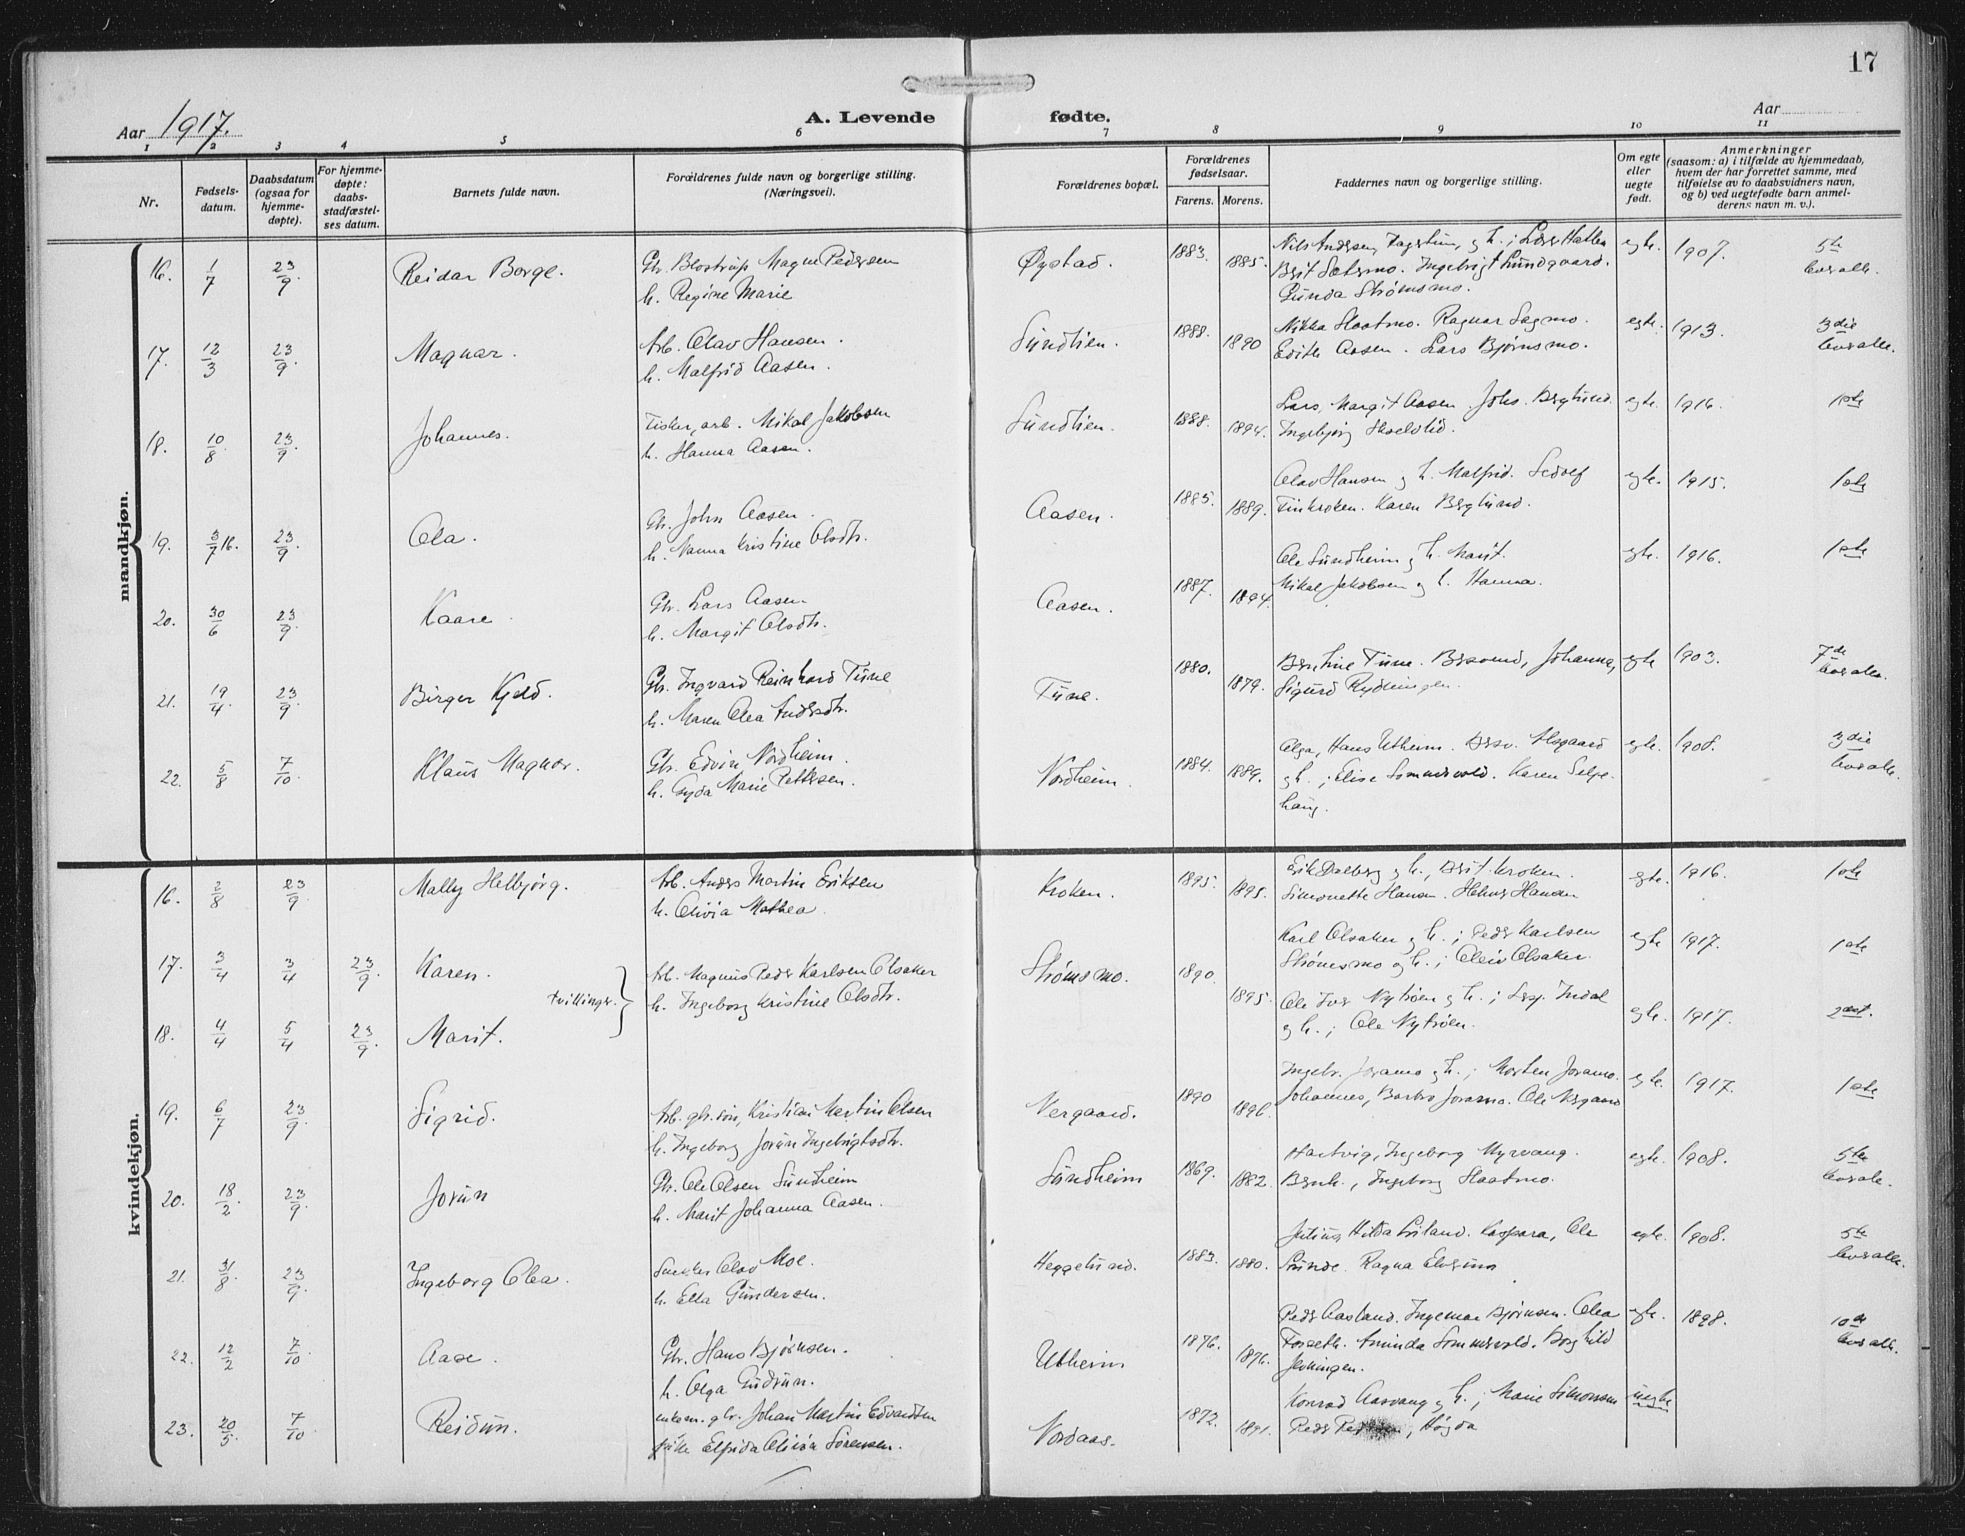 17
Aar 1917.
A. Levende fødte.
Aar
1 2 3 4 5 6 7 8 9 10 11
Nr.
Fødsels-
datum.
Daabsdatum
(ogsaa for
hjemme-
døpte).
For hjemme-
døpte:
daabs-
stadfæstel-
ses datum.
Barnets fulde navn.
Forældrenes fulde navn og borgerlige stilling.
(Næringsvei).
Forældrenes bopæl.
Forældrenes
fødselsaar.
Farens. Morens.
Faddernes navn og borgerlige stilling.
Om egte
eller
uegte
født.
Anmerkninger
(saasom: a) i tilfælde av hjemmedaab,
hvem der har forrettet samme, med
tilføielse av to daabsvidners navn,
og b) ved uegtefødte barn anmel-
derens navn m. v.).
mandkjøn.
16. 1/7 23/9 Reidar Borge. Gbr. Magne Pedersen
h. Regine Marie
Øystad. 1883. 1885.
Nils Andersen, h.;
Brit Sætermo. Ingebrigt Lundgaard.
Gunda Strømsmo.
egte. 1907. 5te
17. 12/3 23/9 Magnar. Arb. Olav Hansen.
h. Malfrid Aasen.
Sundlien. 1888. 1890
Ragnar Sagmo.
Edith Aasen. Lars Bjørnsmo.
egte. 1913. 3die
18. 10/8 23/9 Johannes. Fisker, arb. Mikal Jakobsen
h. Hanna Aasen.
Sundlien. 1888. 1894.
Lars, Margit Aasen Johs. Berglund.
Ingebjørg
egte. 1916. 1ste
19. 3/7 16. 23/9 Ola. Gbr. John Aasen.
h. Nanna Kristine Olsdtr.
Aasen. 1885. 1889.
Olav Hansen og h. Malfrid. Sedolf
Finkroken. Karen Berglund.
egte. 1915. 1ste
20. 30/6 23/9 Kaare. Gbr. Lars Aasen
h. Margit Olsdtr.
Aasen. 1887. 1894.
Ole Sundheim og h. Marit.
Mikal Jakobsen og h. Hanna.
egte. 1916. 1ste
21. 19/4 23/9 Birger Kjeld. Gbr. Ingvard Reinhard Tune
h. Maren Olea Andersdtr.
Tune. 1880. 1879.
Berntine Tune. Johanna,
Sigurd Rydningen.
egte 1903. 7de
22. 5/8 7/10 Klaus Magnar. Gbr. Edvin Nordheim.
h. Gyda Marie Pettersen.
Nordheim. 1884. 1889.
Olga, Hans Utheim.
og h.; Elise Sommervold. Karen Selje-
haug.
egte. 1908. 3die
kvindekjøn.
16. 2/8 23/9 Mally Helbjørg. Arb. Anders Martin Eriksen
h. Olivia Mathea.
Kroken. 1895. 1895.
Erik Dalberg og h., Berit Kroken.
Simonette Hansen. Hansen
egte. 1916. 1ste
17. 3/4 3/4 23/9 Karen. tvillinger. Arb. Magnus Peder Karlsen Olsaker
h. Ingeborg Kristine Olsdtr.
Strømsmo. 1890. 1895.
Karl Olsaker og h.; Peder Karlsen
Strømsmo og h.; Oleiv Olsaker.
egte 1917. 1ste
18. 4/4 5/4 23/9 Marit.
Ole Iver Nytrøen og h.; Indal
og h.; Ole Nytrøen.
egte. 1917. 2det.
19. 6/7 23/9 Sigrid. Arb. gbr. søn, Kristian Martin Olsen
h. Ingeborg Jorun Ingebrigtsdtr.
Nergaard. 1890 1896.
Ingebr. Joramo og h.; Morten Joramo.
Johannes, Barbro Joramo. Ole Nergaard
egte. 1917. 1ste
20. 18/2 23/9 Jorun Gbr. Ole Olsen Sundheim
h. Marit Johanna Aasen.
Sundheim 1869. 1882.
Hartvig, Ingeborg Myrvang.
Bernh., Ingeborg Slaatmo.
egte. 1908. 5te
21. 31/8 23/9 Ingeborg Olea. Snekker Olav Moe.
h. Ella Gundersen.
Heggelund. 1883. 1880.
Julius, Hilda Leiland. Kaspara, Ole
Ragna
egte. 1908. 5te
22. 12/2 7/10 Aase. Gbr. Hans Bjørnsen.
h. Olga Gudrun.
Utheim 1876. 1876.
Peder Aasland. Ingemar Bjørnsen. Olea
Forseth. Aminda Sommervold. Borghild
Jevningen.
egte. 1898. 10de
23. 20/5 7/10 Reidun. enkem. gbr. Johan Martin Edvardsen
pike Elfrida Olivia Sørensen.
Nordaas. 1872. 1891.
Konrad Aasvang og h.; Marie Simonsen
Peder, Høgda
uegte